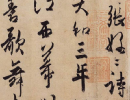 張好〻詩
大和三年
江西幕
善歌舞